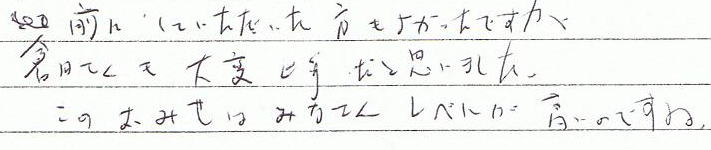 前にしていただいた方もよかったですが、
倉田さんも大変上手だと思いました。
このおみせはみなさんレベルが高いのですね。